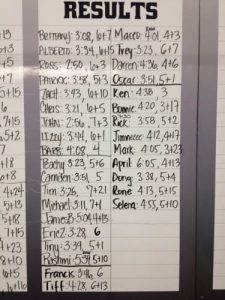 RESULTS
Brittany: 3:08, 6+7
ALBERTO: 3:34, 6+15
ROSS: 2:50, 6+3
PATRICK: 3:58, 5+3
ZACH: 3:43, 6+10
Chris: 3:21, 6+5
JOHN: 2:56, 7+3
LIZZY: 3:44, 6+1
BARB: 4:08, 4
Peachy 3:23, 5+6
Camden: 3:51, 5
Tim 3:26, 7+21
Michael: 3:11, 7+
James B: 5:04 4+13
Eric Z 3:28 6
Tiny: 3:34, 5+1
Rashmi: 5:34 5+10
Francis: 3:46 6
TIFF: 4:28, 6+13
Marco: 4:01 4+3
Trey: 3:23, 6+7
Darren 4:36 4+6
Oscar: 3:51, 5+1
Ken: 4:38, 3
Bonnie: 4:20, 3+17
Rick: 3:58 5+2
Jimmeee: 4:12, 4+17
Mark: 4:05, 3+23
April: 6:05, 4+13
Dong: 3:38, 5+4
Rone 4:13, 5+15
Selena: 4:55, 5+10